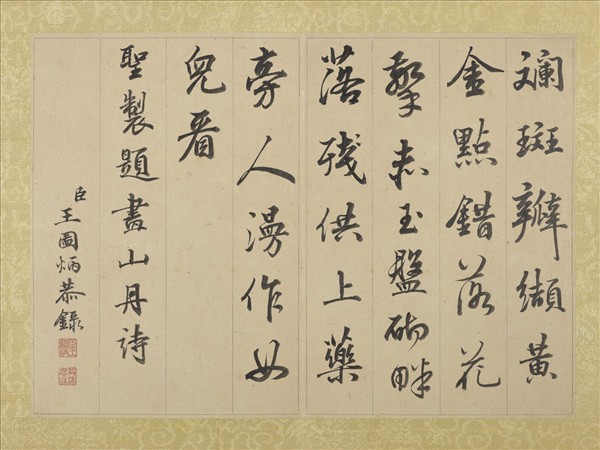 斕斑瓣纈黃
金點錯落花
擎赤玉盤砌畔
落殘供上藥
旁人漫作女
兒看
聖製題畫山丹詩
臣王圖炳恭錄